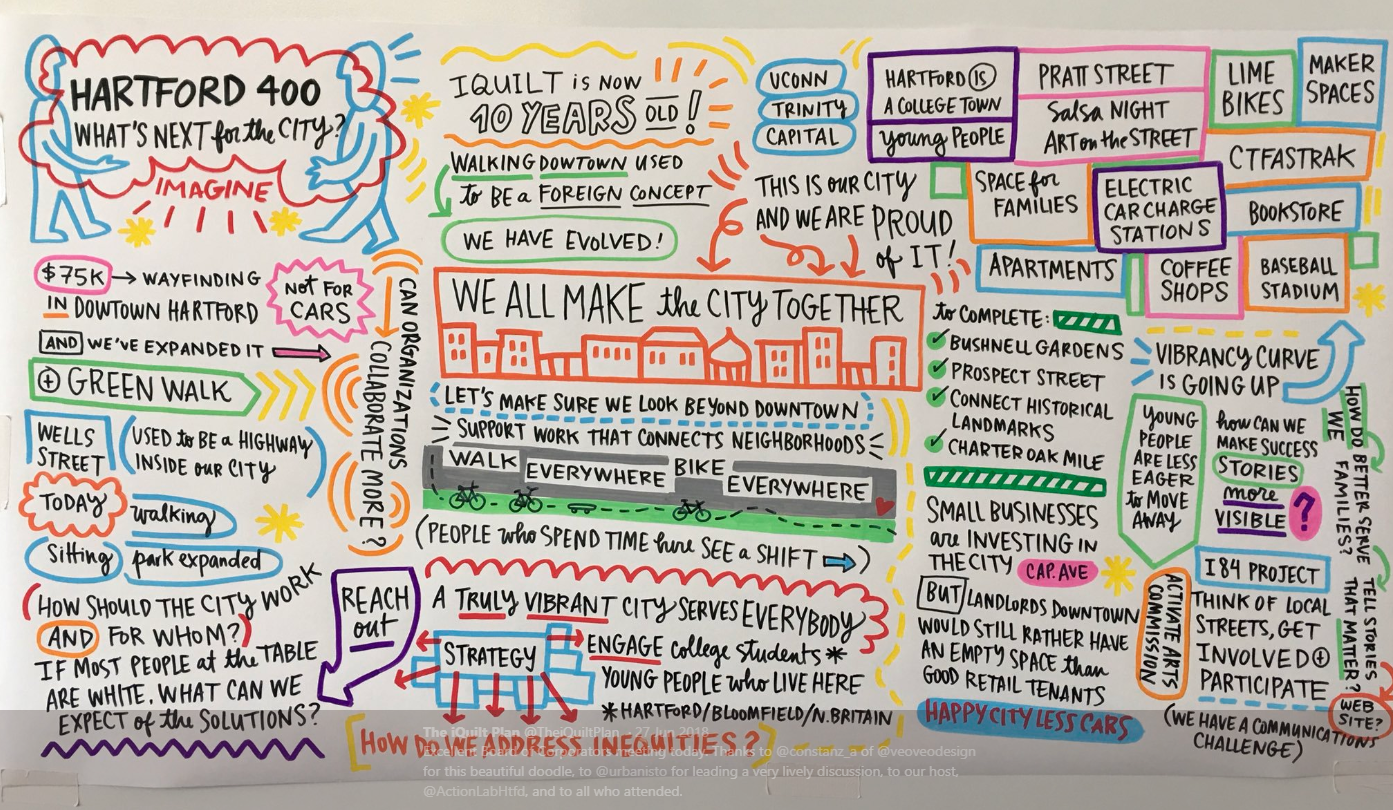 HARTFORD 400
WHAT'S NEXT for the CITY?
IMAGINE
$75K → WAYFINDING
IN DOWTOWN HARTFORD
NOT FOR
CARS
AND WE'VE EXPANDED IT
+ GREEN WALK
WELLS
STREET
USED to BE a HIGHWAY
INSIDE OUR CITY
TODAY
walking
Sitting
park expanded
(HOW SHOULD THE CITY WORK
AND FOR WHOM?)
IF MOST PEOPLE at the TABLE
ARE WHITE. WHAT CAN WE
EXPECT of the SOLUTIONS?
CAN ORGANIZATIONS
COLLABORATE MORE?
REACH
out
IQUILT is NOW
10 YEARS OLD!
WALKING DOWTOWN USED
to BE a FOREIGN CONCEPT
WE HAVE EVOLVED!
UCONN
TRINITY
CAPITAL
THIS IS OUR CITY
AND WE ARE PROUD
of IT!
WE ALL MAKE the CITY TOGETHER
LET'S MAKE SURE WE LOOK BEYOND DOWNTOWN
SUPPORT WORK THAT CONNECTS NEIGHBORHOODS
WALK EVERYWHERE BIKE EVERYWHERE
(PEOPLE who SPEND TIME here SEE a SHIFT →)
A TRULY VIBRANT CITY SERVES EVERYBODY
STRATEGY
ENGAGE college students *
YOUNG PEOPLE who LIVE HERE
* HARTFORD/BLOOMFIELD/N.BRITAIN
[HOW DO WE ADDRESS INEQUALITIES?]
HARTFORD IS
A COLLEGE TOWN
young PEOPLE
PRATT STREET
Salsa NIGHT
ART on the STREET
LIME
BIKES
MAKER
SPACES
CTFASTRAK
SPACE for
FAMILIES
ELECTRIC
CAR CHARGE
STATIONS
BOOKSTORE
APARTMENTS
COFFEE
SHOPS
BASEBALL
STADIUM
to COMPLETE:
✓ BUSHNELL GARDENS
✓ PROSPECT STREET
✓ CONNECT HISTORICAL
LANDMARKS
✓ CHARTER OAK MILE
SMALL BUSINESSES
are INVESTING IN
THE CITY CAP. AVE
BUT LANDLORDS DOWNTOWN
WOULD STILL RATHER HAVE
AN EMPTY SPACE than
GOOD RETAIL TENANTS
HAPPY CITY LESS CARS
VIBRANCY CURVE
IS GOING UP
YOUNG
PEOPLE
ARE LESS
EAGER
to MOVE
AWAY
how CAN WE
MAKE SUCCESS
STORIES
more
VISIBLE
?
HOW DO WE BETTER SERVE FAMILIES?
TELL STORIES THAT MATTER?
WEB
SITE?
ACTIVATE ARTS
COMMISSION
I84 PROJECT
THINK OF LOCAL
STREETS, GET
INVOLVED +
PARTICIPATE
(WE HAVE A COMMUNICATIONS
CHALLENGE)
The iQuilt Plan @TheiQuiltPlan · 27 Jun 2018
Excellent Board of Corporators meeting today! Thanks to @constanz_a of @veoveodesign
for this beautiful doodle, to @urbanisto for leading a very lively discussion, to our host,
@ActionLabHtfd, and to all who attended.